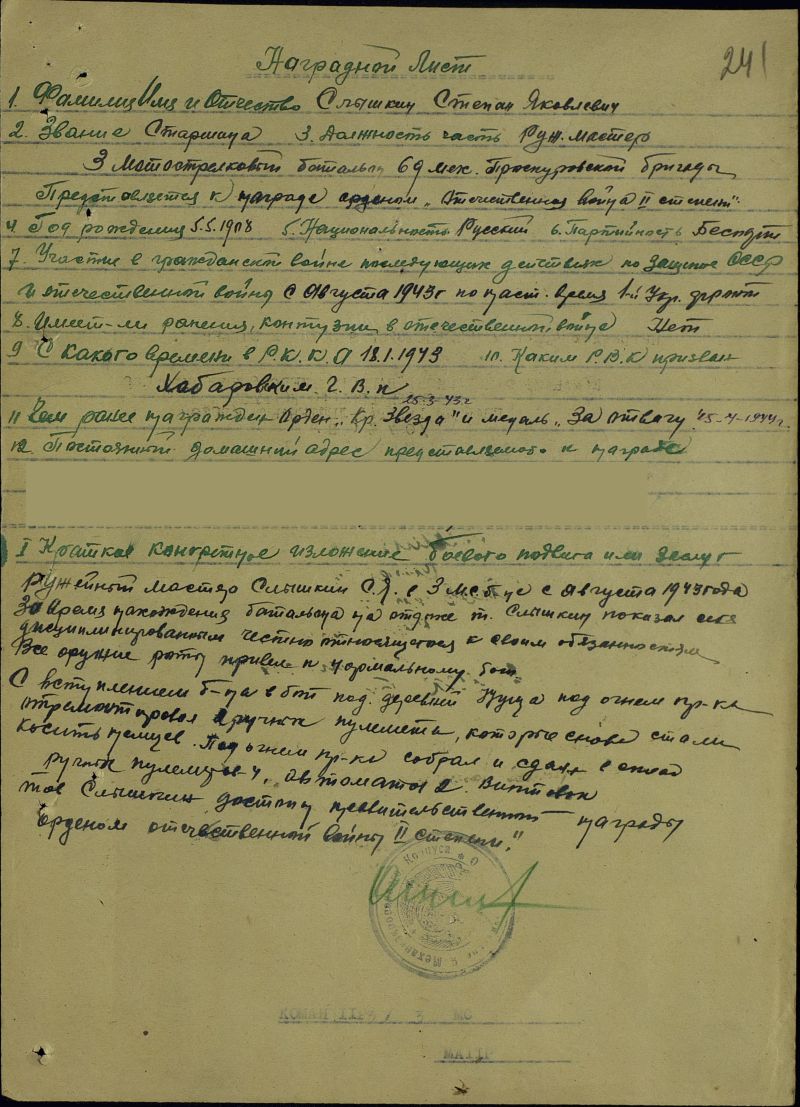 241
Наградной Лист
1. Фамилия Имя и Отчество Слышкин Степан Яковлевич
2. Звание Старшина 3. Должность часть Руж. мастер
3 Мотострелковый батальон 69 мех. Проскуровской бригады
Представляется к награде орденом „Отечественная война II степени"
4. Год рождения 5.5.1908 5. Национальность Русский 6. Партийность Беспарт
7. Участие в гражданской войне последующих действиях по защите СССР
и отечественной войне с августа 1943г по наст. время 1-й Укр. фронт
8. Имеет-ли ранения, контузии в отечественной войне Нет
9 С какого времени в Р.К.К.А 18.1.1943 10. Каким Р.В.К призван
Хабаровским. Г.В.К
25-3-43г
11 Чем ранее награжден Орден „Кр. Звезда" и медаль „За отвагу" 15-4-1944г.
12. Постоянный домашний адрес представляемого к награде
I Краткое конкретное изложение боевого подвига или заслуг
Ружейный мастер Слышкин С.Я. в 3 мсб с августа 1943 года
За время нахождения батальона на отдыхе т. Слышкин показал себя
дисциплинированным честно относящегося к своим обязанностям
Все оружие роты привел к нормальному бою
С вступлением б-на в бой под деревней под огнем пр-ка
отремонтировал 2 ручных пулемета, которые снова стали
косить немцев. Под огнем пр-ка собрал и сдал в склад
ручных пулеметов 4, автоматов 2. винтовок
тов Слышкин достоин правительственной награды
Орденом отечественной войны II степени."
Корпуса
МС